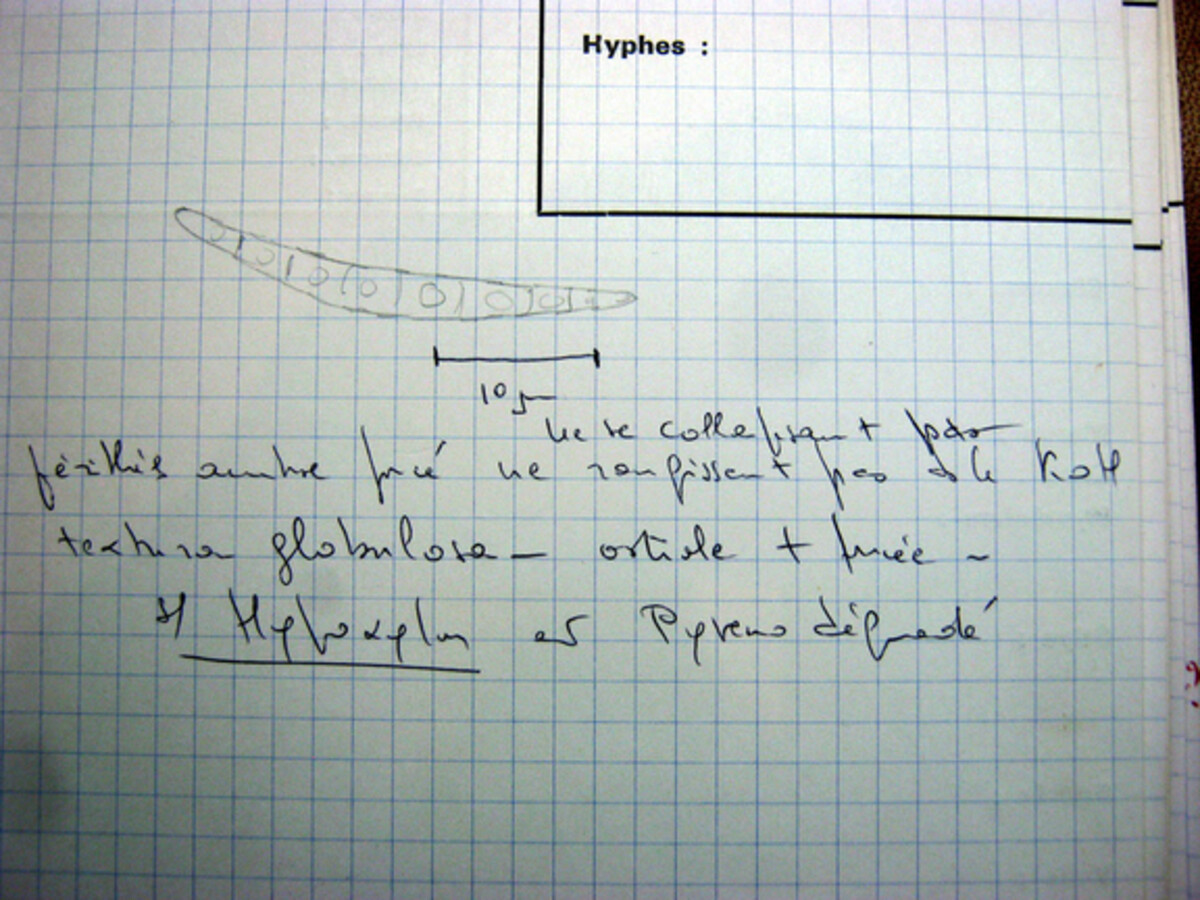 Hyphes :
10 µm
ne se collapsant pas
périthès ambre foncé ne rougissant pas ds le KOH
textura globulosa – ostiole + foncée –
s/ Hypoxylon et Pyreno dégradé